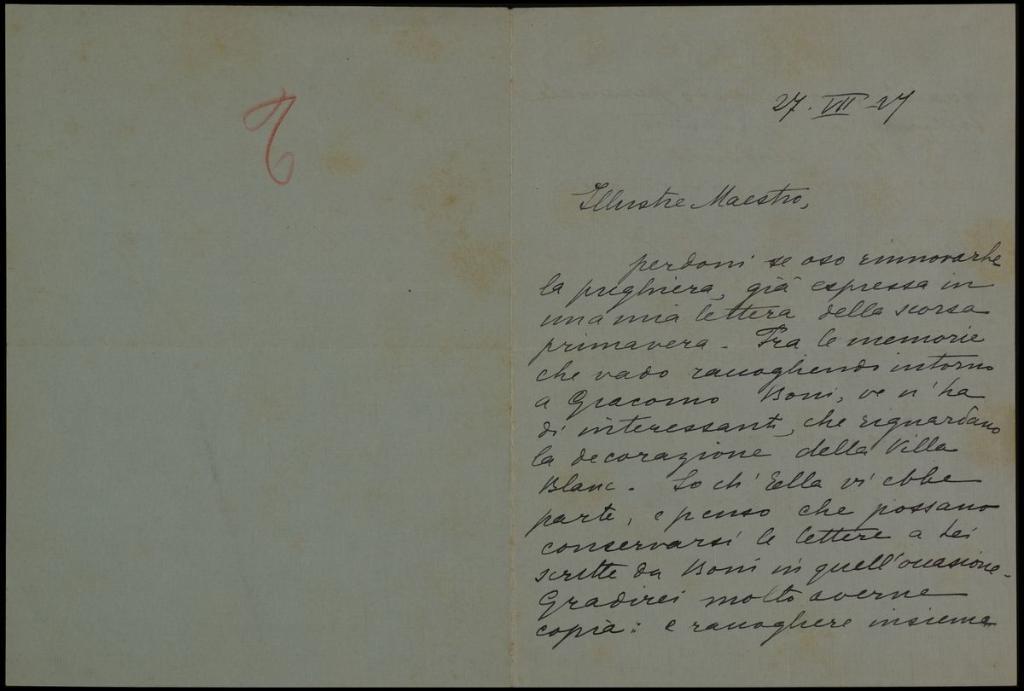 27. VII 27
Illustre Maestro,
perdoni se oso rinnovarLe
la preghiera, già espressa in
una mia lettera della scorsa
primavera. Fra le memorie
che vado raccogliendo intorno
a Giacomo Boni, ve n'ha
di interessanti, che riguardano
la decorazione della Villa
Blanc. So ch'Ella vi ebbe
parte, e penso che possano
conservarsi le lettere a Lei
scritte da Boni in quell'occasione.
Gradirei molto averne
copia: e raccogliere insieme